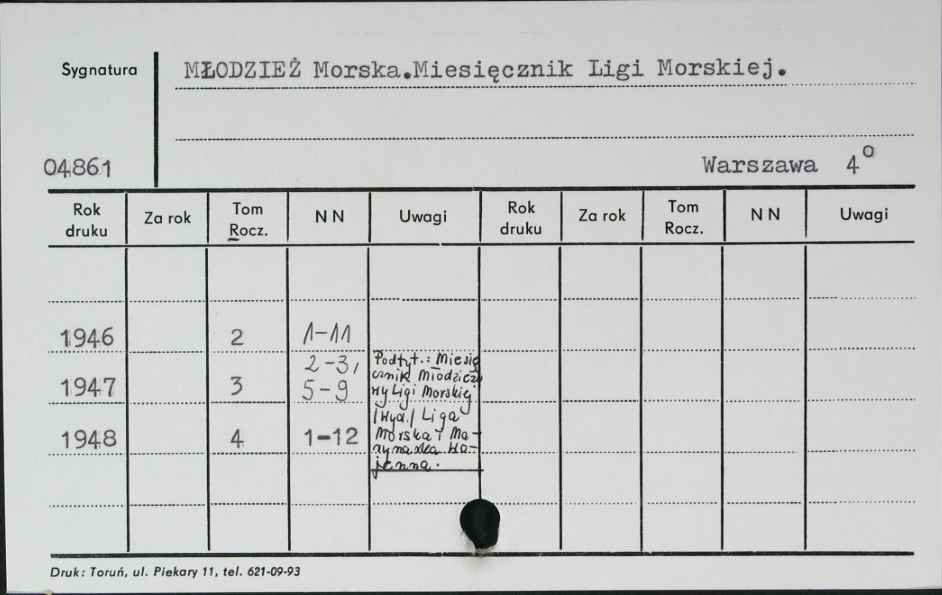 Sygnatura MŁODZIEŻ Morska.Miesięcznik Ligi Morskiej.
04861 Warszawa 4°
Rok druku Za rok Tom Rocz. N N Uwagi Rok druku Za rok Tom Rocz. N N Uwagi
1946 2 1-11
1947 3 2-3,
5-9
1948 4 1-12
Podtyt.: Miesię
cznik Młodzież
wy Ligi Morskiej
/Wyd./ Liga
Morska i Ma-
rynarka Wo-
jenna.
Druk: Toruń, ul. Piekary 11, tel. 621-09-93